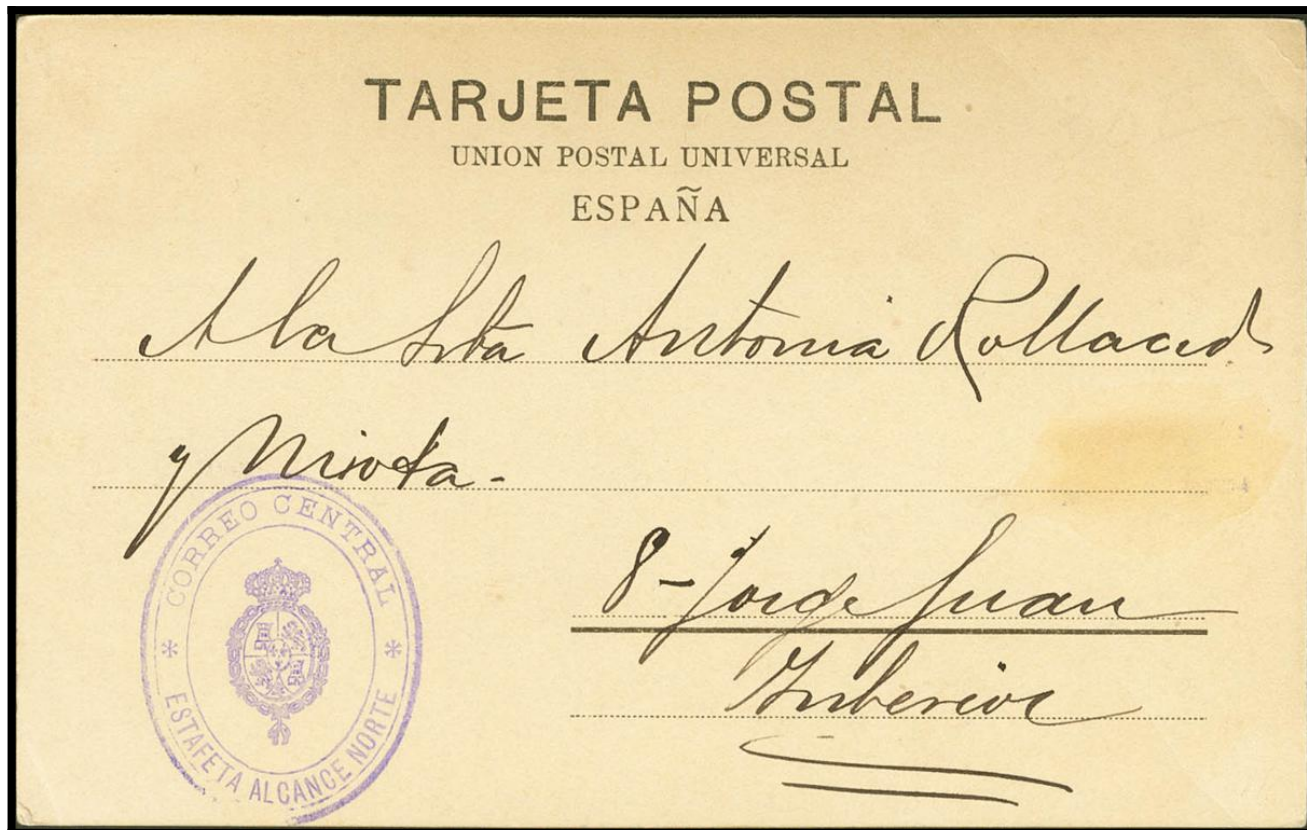 TARJETA POSTAL
UNION POSTAL UNIVERSAL
ESPAÑA
A la Srta Antonia
y
8 - Jorge Juan
Interior
CORREO CENTRAL
* *
ESTAFETA ALCANCE NORTE